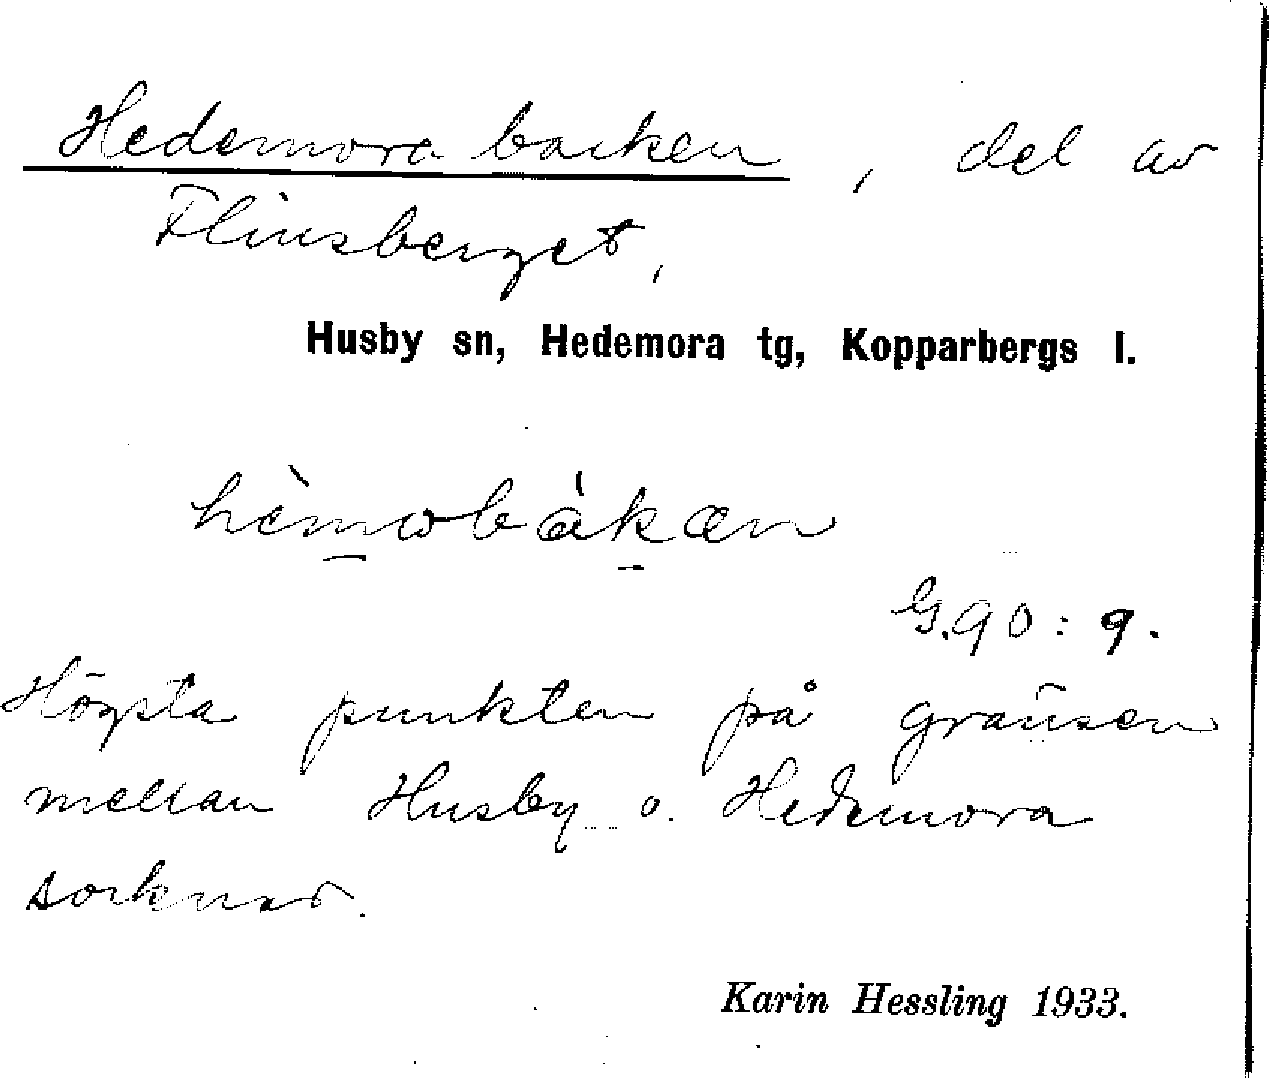 Hedemorabacken, del av
Flinsberget,
Husby sn, Hedemora tg, Kopparbergs l.
hèmωbákæn
G.90:9.
Högsta punkten på gränsen
mellan Husby o. Hedemora
socknar.
Karin Hessling 1933.